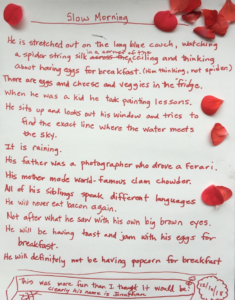 Slow Morning
He is stretched out on the long blue couch, watching
in a corner of the
a spider string silk across the ceiling and thinking
about having eggs for breakfast. (Him thinking, not spider)
There are eggs and cheese and veggies in the fridge.
When he was a kid he took painting lessons.
He sits up and looks out his window and tries to
find the exact line where the water meets
the sky.
It is raining.
His father was a photographer who drove a Ferari.
His mother made world-famous clam chowder.
All of his siblings speak different languages
He will never eat bacon again.
Not after what he saw with his own big brown eyes.
He will be having toast and jam with his eggs for
breakfast.
He will definitely not be having popcorn for breakfast
This was more fun than I thought it would be!
Clearly his name is Jonathan